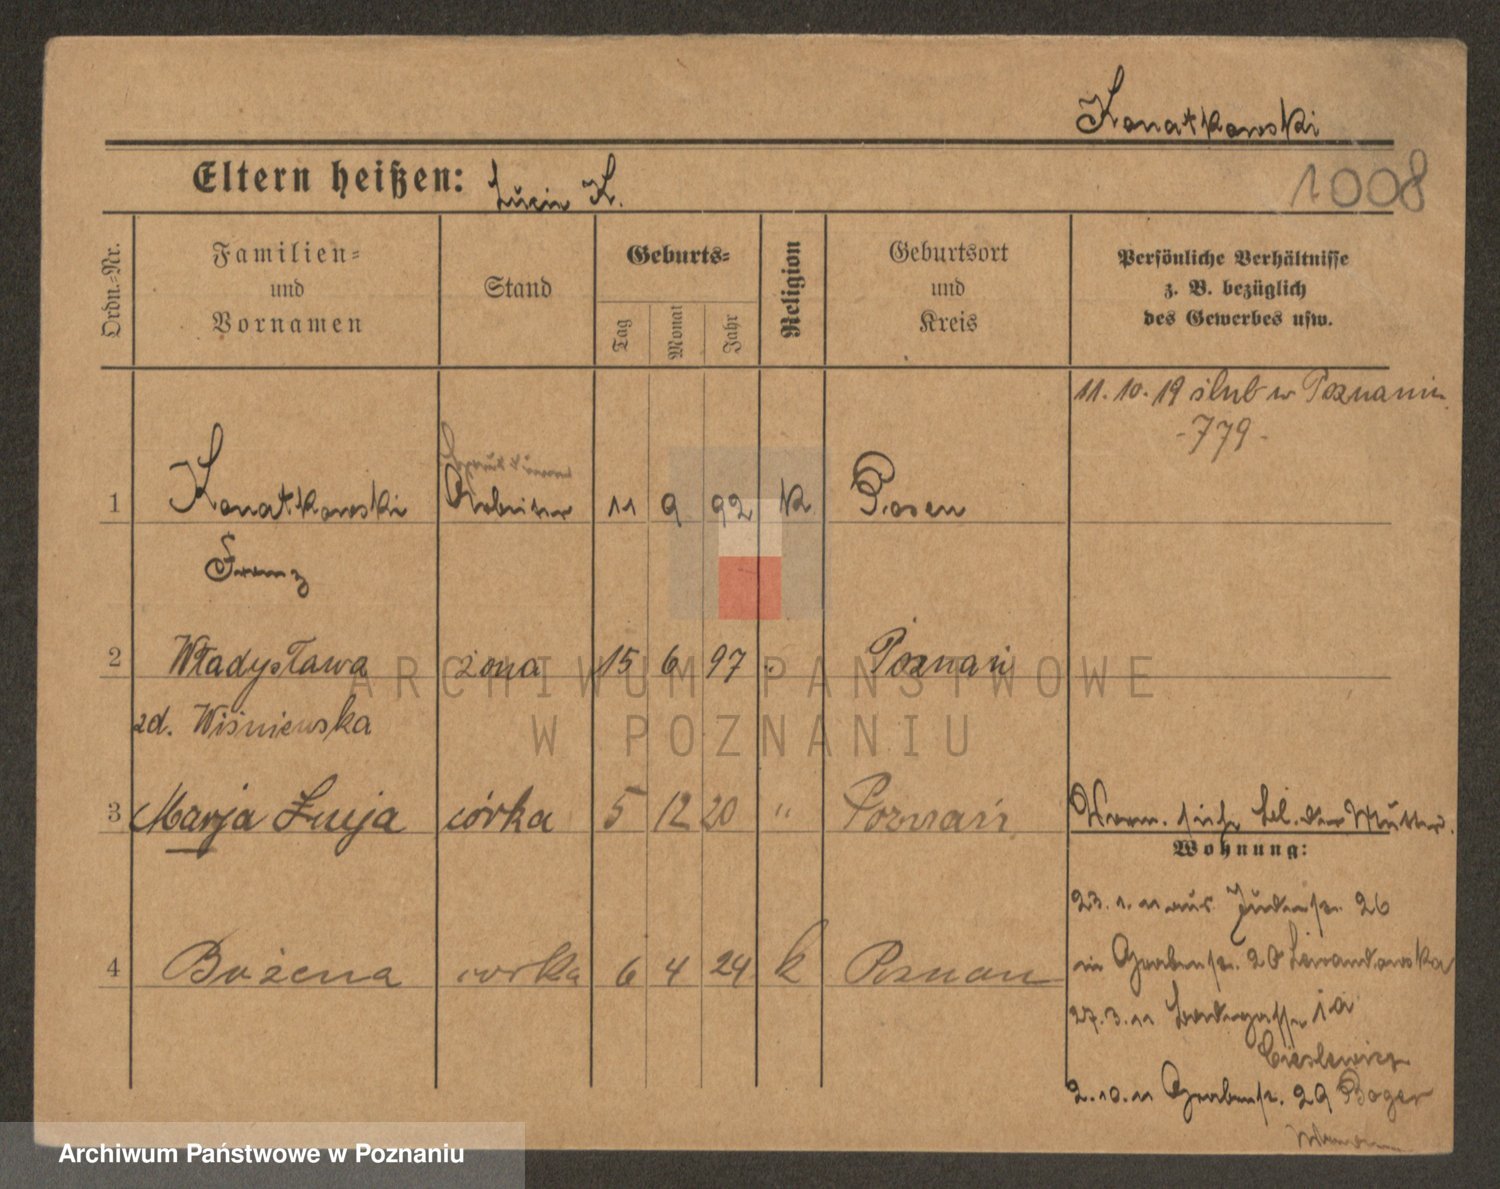 Konatkowski
1008
Eltern heißen: Lucie K.
Ordn.-Nr.
Familien-
und
Vornamen
Stand
Geburts-
Tag
Monat
Jahr
Religion
Geburtsort
und
Kreis
Persönliche Verhältnisse
z. B. bezüglich
des Gewerbes usw.
11. 10. 19 ślub w Poznaniu
- 779 -
1 Konatkowski Arbeiter 11 9 92 k Posen
Franz
2 Władysława żona 15 6 97 " Poznań
zd. Wiśniewska
3 Marja Łucja córka 5 12 20 " Poznań
Vorm. siehe bei der Mutter.
Wohnung:
4 Bożena corka 6 4 24 k Poznan
23. 1. 11 aus Judenstr. 26
in Grabenstr. 20 Lewandowska
27. 3. 11 1a
2. 10. 11 Grabenstr. 29
ARCHIWUM PAŃSTWOWE
W POZNANIU
Archiwum Państwowe w Poznaniu